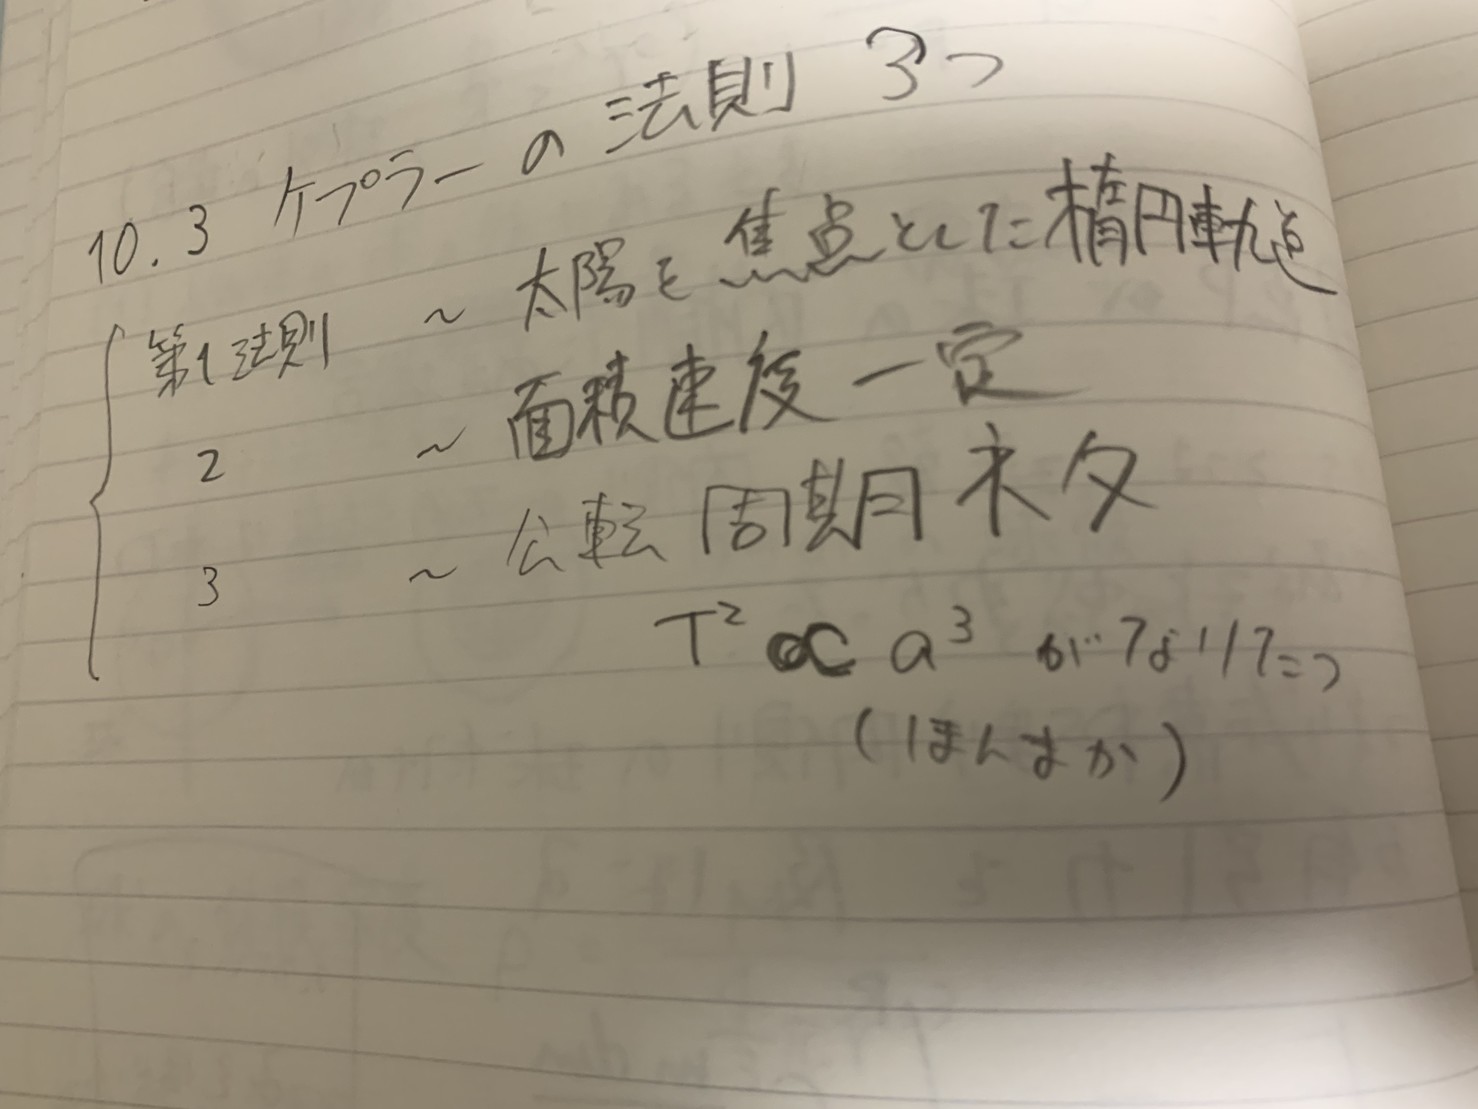 10.3 ケプラーの法則 3つ
第1法則 ~ 太陽を焦点とした楕円軌道
2 ~ 面積速度一定
3 ~ 公転周期ネタ
T² ∝ a³ がなりたつ
(ほんまか)